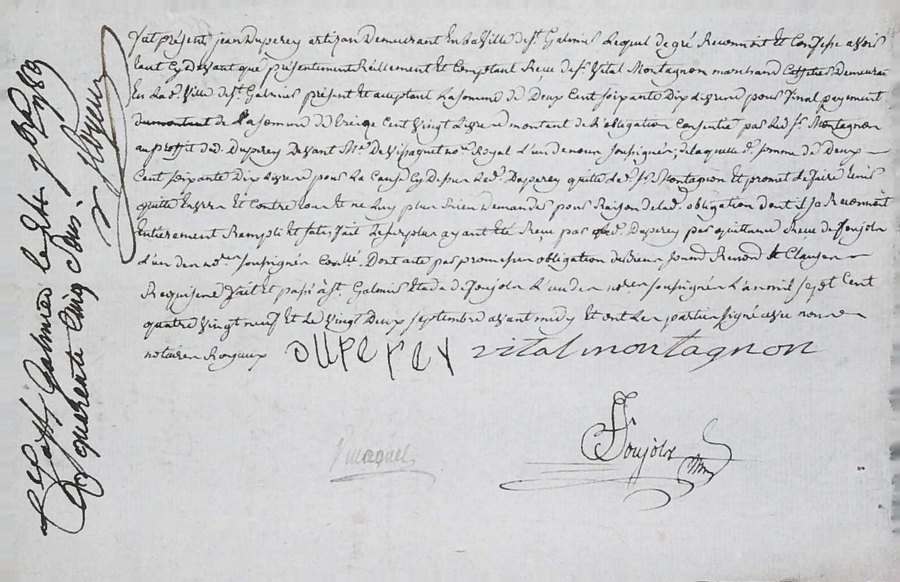 fut présent jean Duperey artizan Demeurant En La Ville de St. Galmier Lequel de gré Reconnoit et Confesse avois
tant Cy Devant que présentement Réellement Et Comptant Receu de Sr. Vital Montagnon marchand Demeurant
En Lad. Ville de St. Galmier présent Et acceptant La somme de Deux Cent soixante Dix Livres pour final payement
de La somme de Cent Vingt Livres montant de L'obligation Consentie par Led. Sr. Montagnon
au proffit dud. Duperey Devant Me. nore. Royal L'un de nous soussignés, de laquelle d. somme de Deux
Cent soixante Dix Livres pour La Cause Cy Dessus Led. Duperey quitte Led. Sr. Montagnon Et promet de faire tenir
quitte Envers Et Contre tous Et ne Luy plus Rien Demander pour Raison de lad. obligation dont il sa Reconnoit
Entierement Rempli Et satisfait Le surplus ayant été Reçu par led. Duperey par quittance Receu de Soujols
L'un des nores. soussignés Conllé. Dont acte par promesses obligation de Biens Renond Et Clauzes
Requises fait et passé à St. Galmier Etude de Soujols L'un des nores soussignés L'an mil sept Cent
quatre Vingt neuf Et Le Vingt Deux septembre avant midy Et ont Les parties signé avec nous
notaires Royaux Duperey vital montagnon
Soujols
à St. Galmier le 1789
quarente Cinq sous.